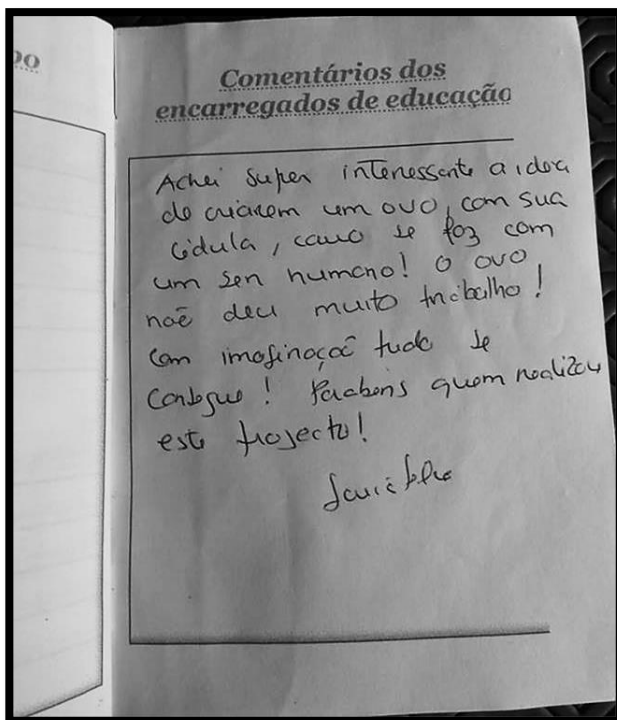 DO
Comentários dos
encarregados de educação
Achei super interessante a ideia
de criarem um ovo, com sua
cédula, como se faz com
um ser humano! O ovo
não deu muito trabalho!
Com imaginação tudo se
consegue! Parabens quem realizou
este projecto!